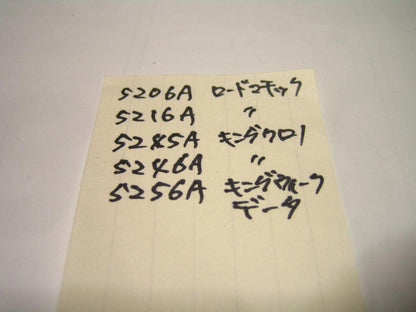 5206A ロードマチック
5216A 〃
5245A キングクロノ
5246A 〃
5256A キングクォーツ
データ